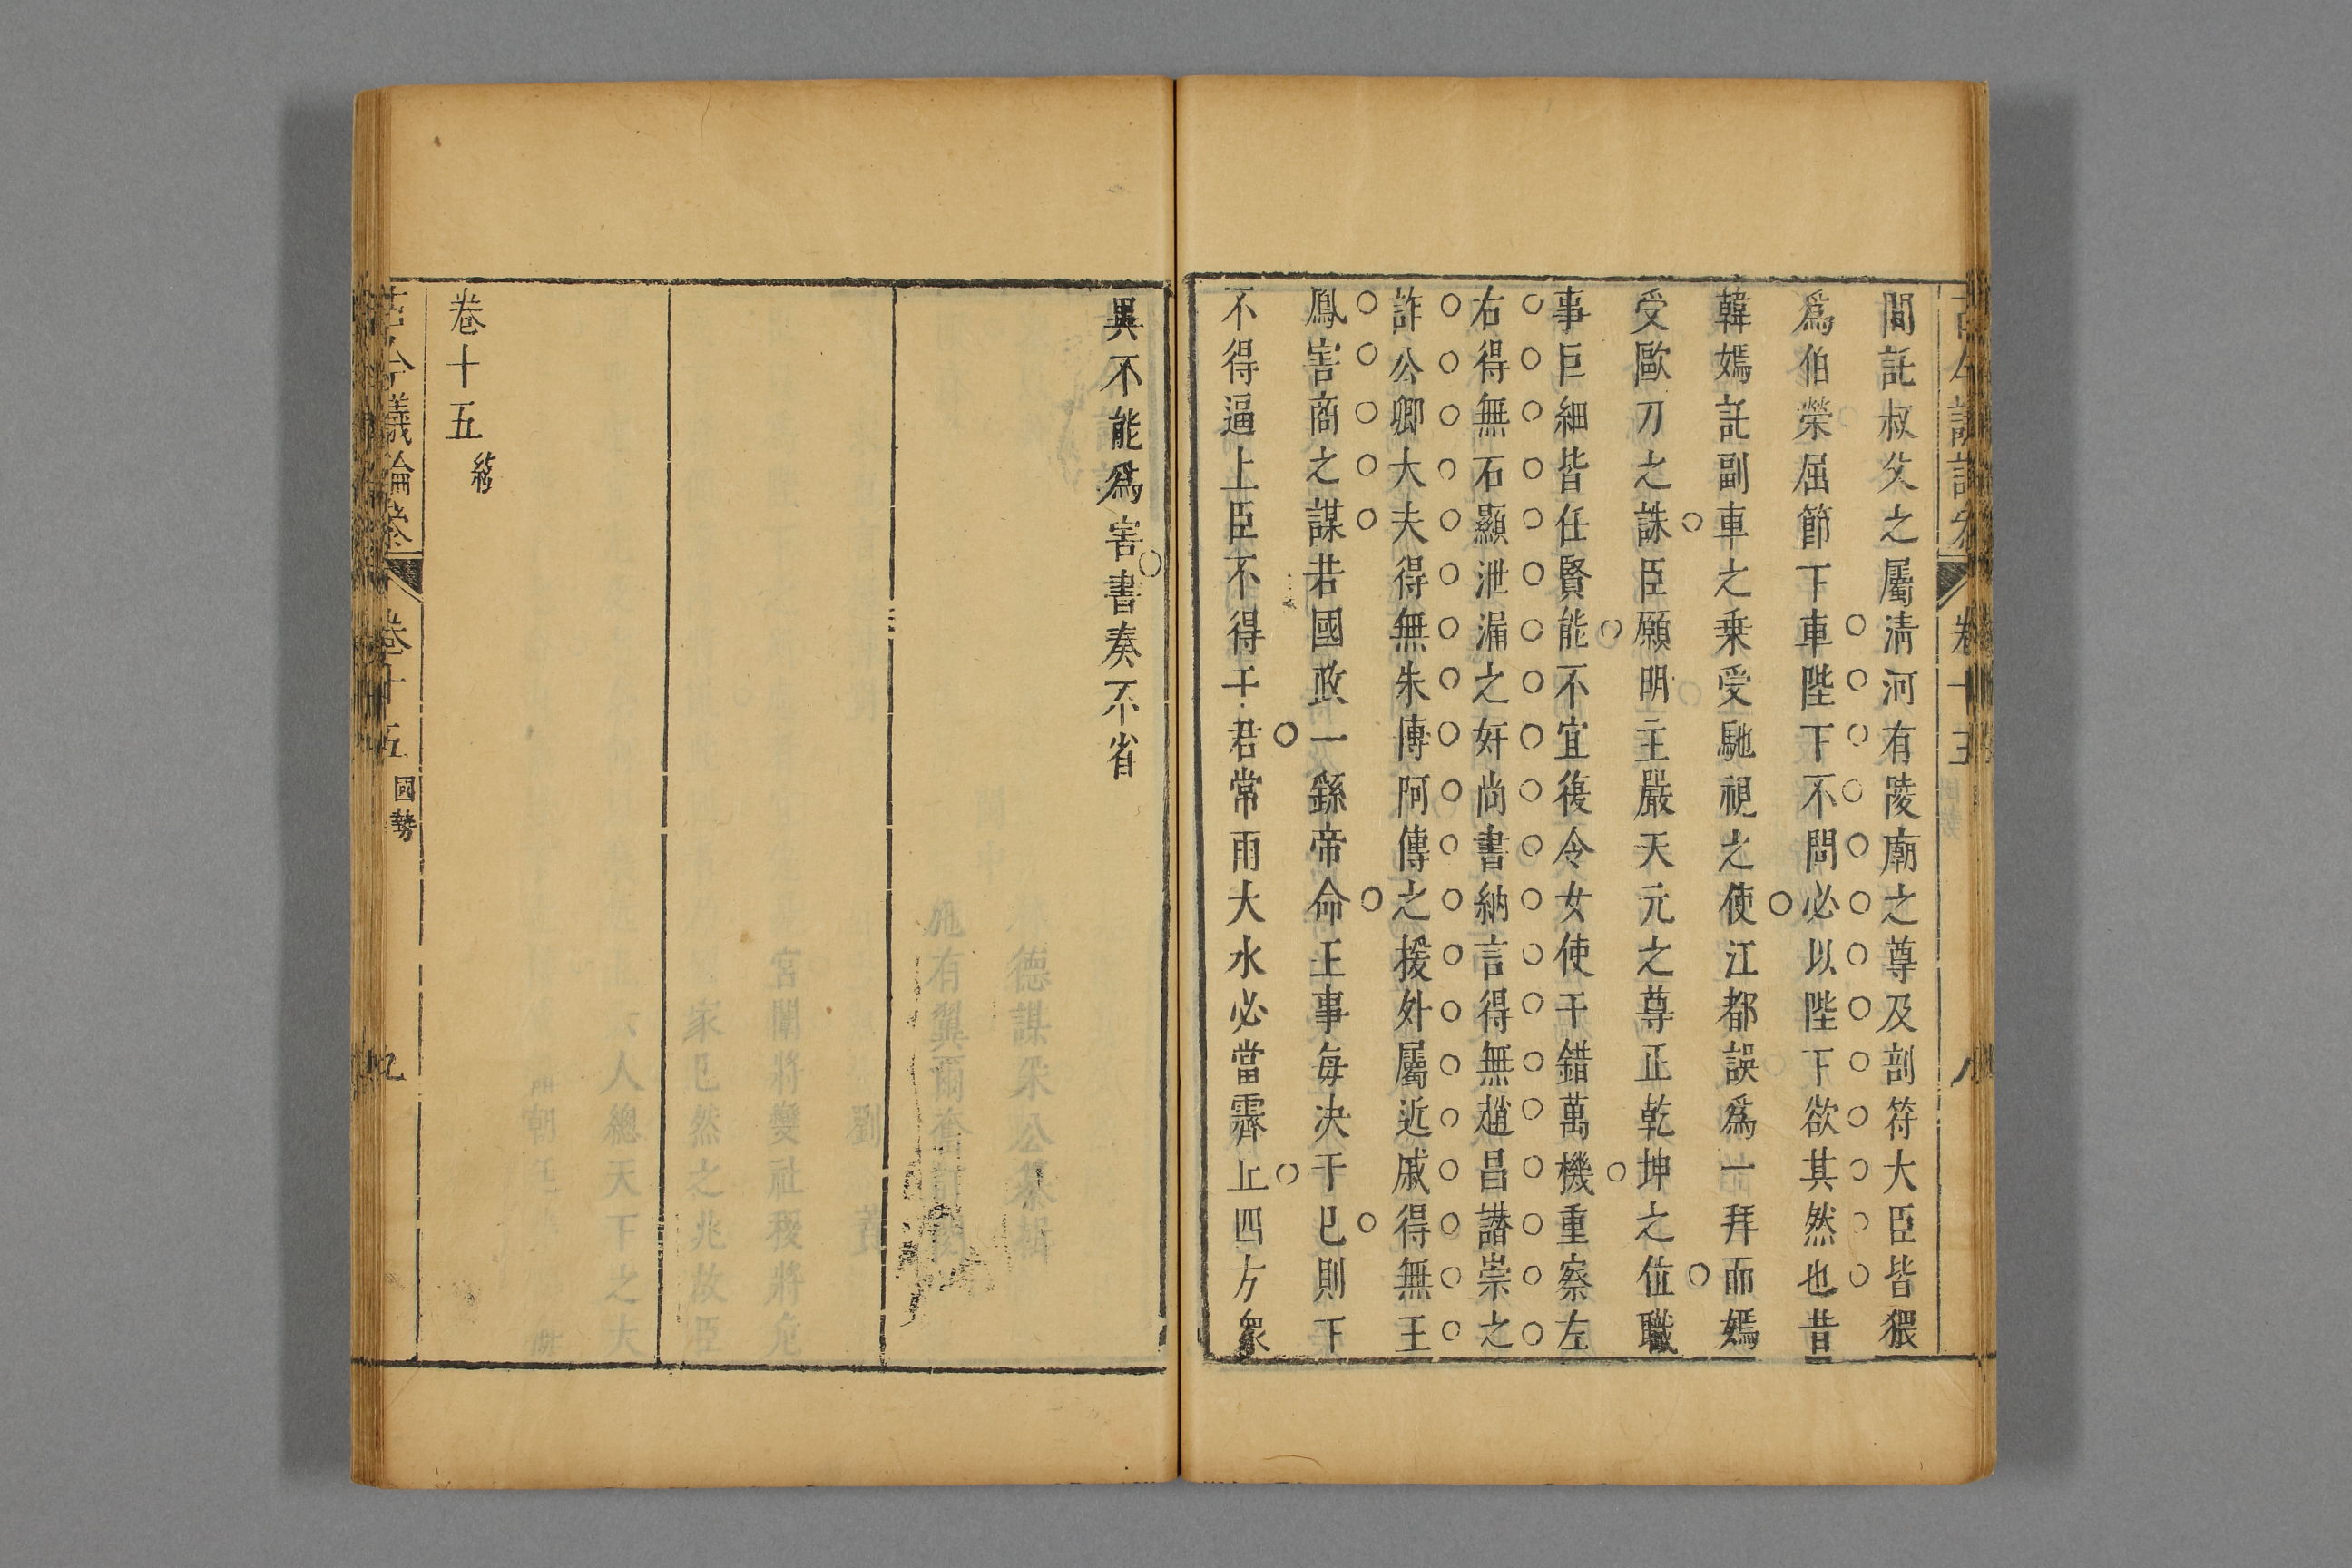 間託叔父之屬淸河有陵廟之尊及剖符大臣皆猥
爲伯榮屈節下車陛下不問必以陛下欲其然也昔
韓嫣託副車之乗受馳視之使江都誤爲一拜而嫣
受歐刀之誅臣願明主嚴天元之尊正乾坤之位職
事巨細皆任賢能不宜復令女使干錯萬機重察左
右得無石顯泄漏之奸尚書納言得無趙昌譖崇之
詐公卿大夫得無朱博阿傅之援外屬近戚得無王
鳳害商之謀若國政一繇帝命王事每决于已則下
不得逼上臣不得干君常雨大水必當霽止四方衆
異不能爲害書奏不省
卷十五終
古今議論參
卷十五
國勢
九